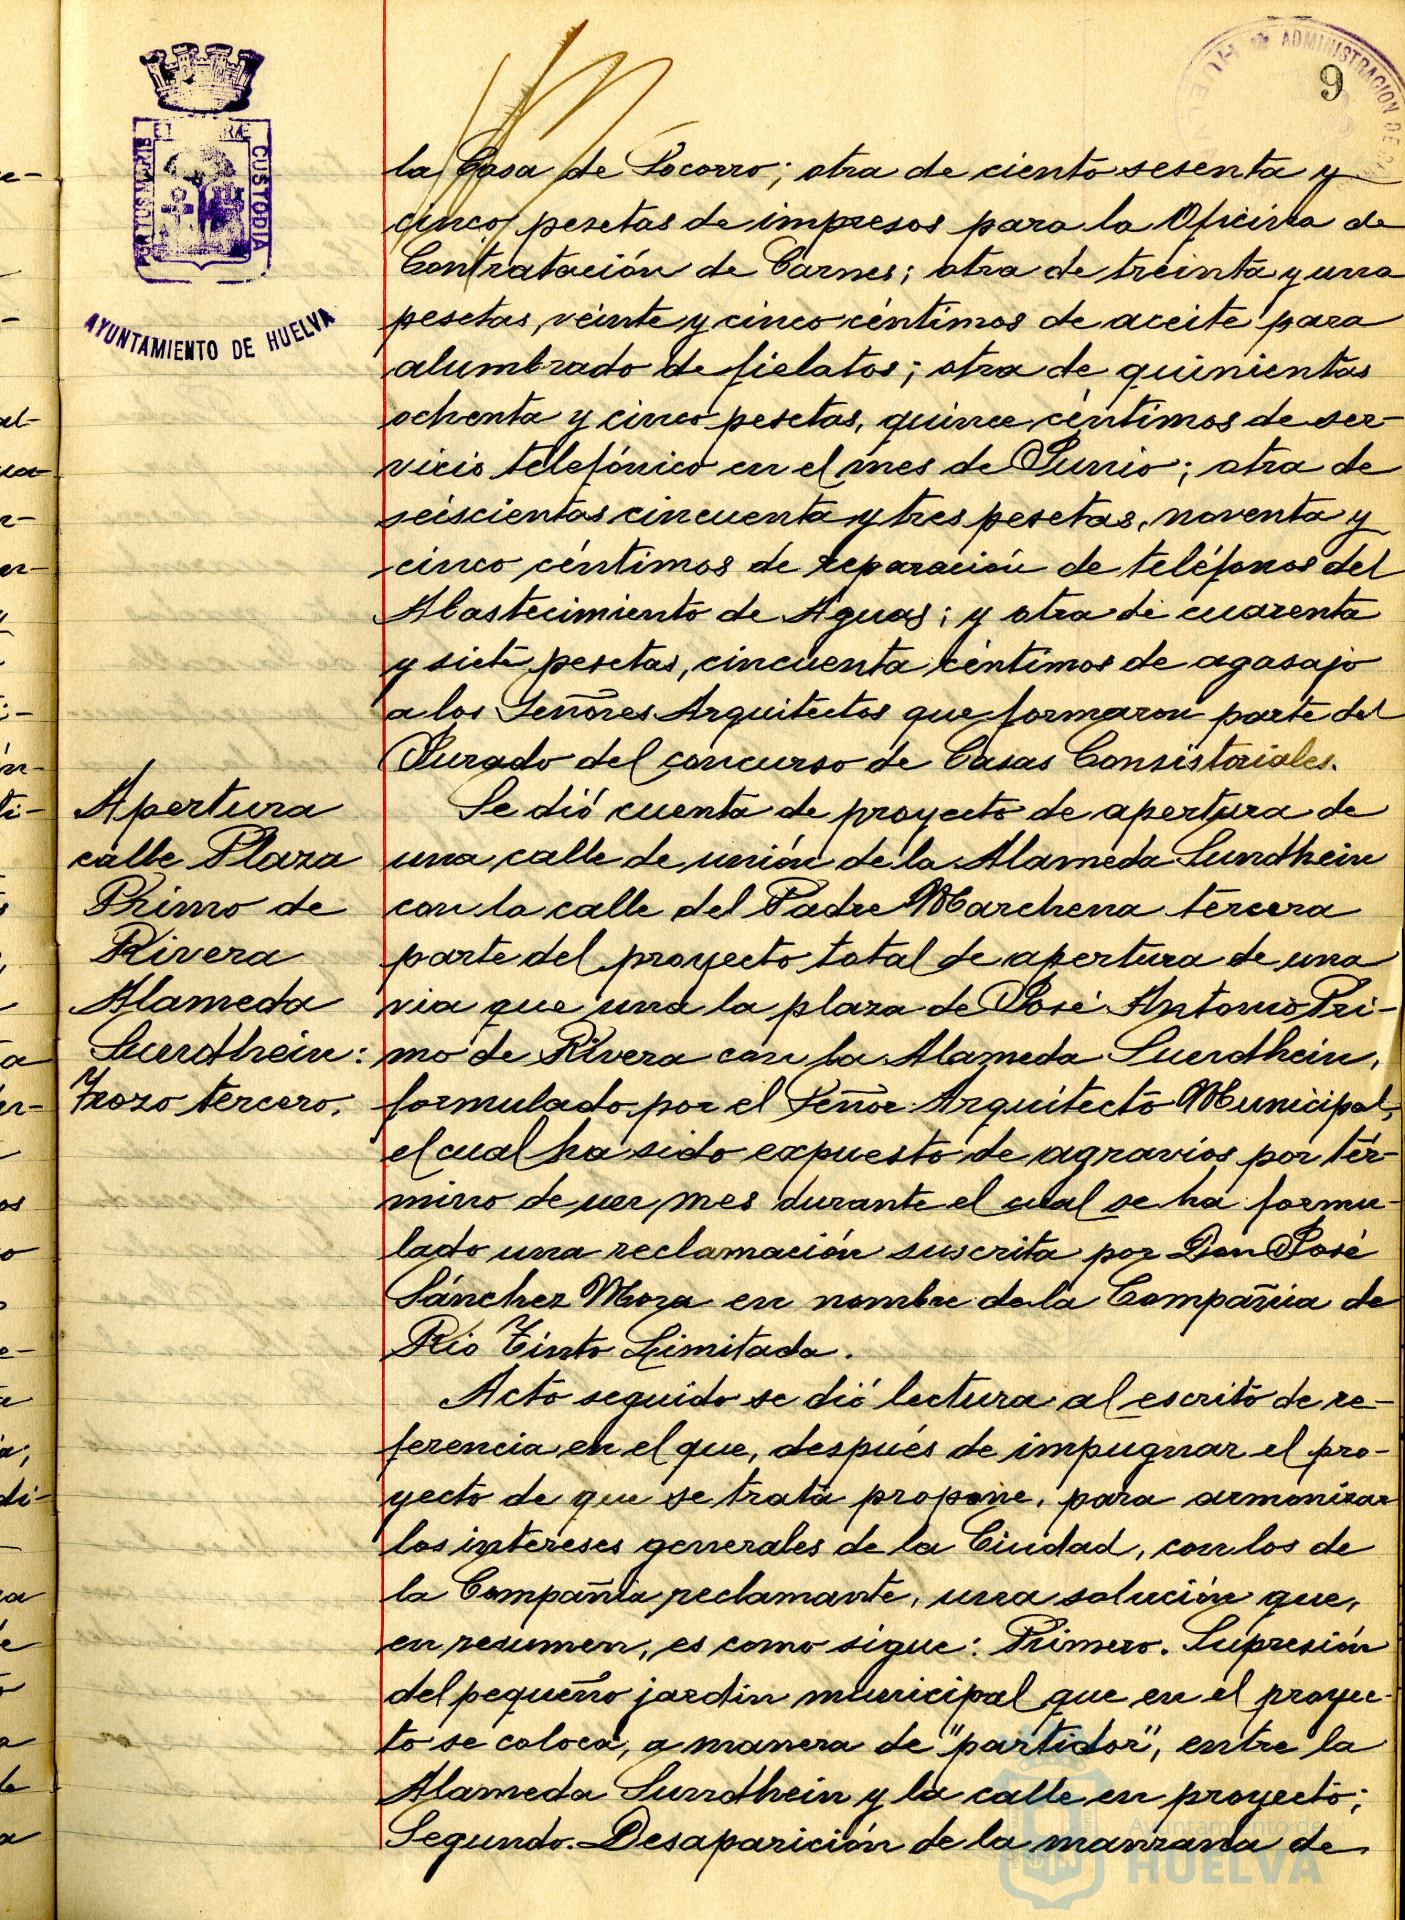 9
ADMINISTRACION DE
HUELVA
PORTUS MARIS
ET TERRAE
CUSTODIA
AYUNTAMIENTO DE HUELVA
la Casa de Socorro; otra de ciento sesenta y
cinco pesetas de impresos para la Oficina de
Contratación de Carnes; otra de treinta y una
pesetas, veinte y cinco céntimos de aceite para
alumbrado de fielatos; otra de quinientas
ochenta y cinco pesetas, quince céntimos de ser-
vicio telefónico en el mes de Junio; otra de
seiscientas cincuenta y tres pesetas, noventa y
cinco céntimos de reparación de teléfonos del
Abastecimiento de Aguas; y otra de cuarenta
y siete pesetas, cincuenta céntimos de agasajo
a los Señores Arquitectos que formaron parte del
Jurado del concurso de Casas Consistoriales.
Apertura
calle Plaza
Primo de
Rivera
Alameda
Sundhein:
Trozo tercero.
Se dió cuenta de proyecto de apertura de
una calle de unión de la Alameda Sundhein
con la calle del Padre Marchena tercera
parte del proyecto total de apertura de una
via que una la plaza de José Antonio Pri-
mo de Rivera con la Alameda Sundhein,
formulado por el Señor Arquitecto Municipal,
el cual ha sido expuesto de agravios por tér-
mino de un mes durante el cual se ha formu-
lado una reclamación suscrita por Don José
Sánchez Mora en nombre de la Compañia de
Rio Tinto Limitada.
Acto seguido se dió lectura al escrito de re-
ferencia en el que, después de impugnar el pro-
yecto de que se trata propone, para armonizar
los intereses generales de la Ciudad, con los de
la Compañia reclamante, una solución que,
en resumen, es como sigue: Primero. Supresión
del pequeño jardin municipal que en el proyec-
to se coloca, a manera de "partidor", entre la
Alameda Sundhein y la calle en proyecto;
Segundo. Desaparición de la manzana de
Ayuntamiento de
HUELVA